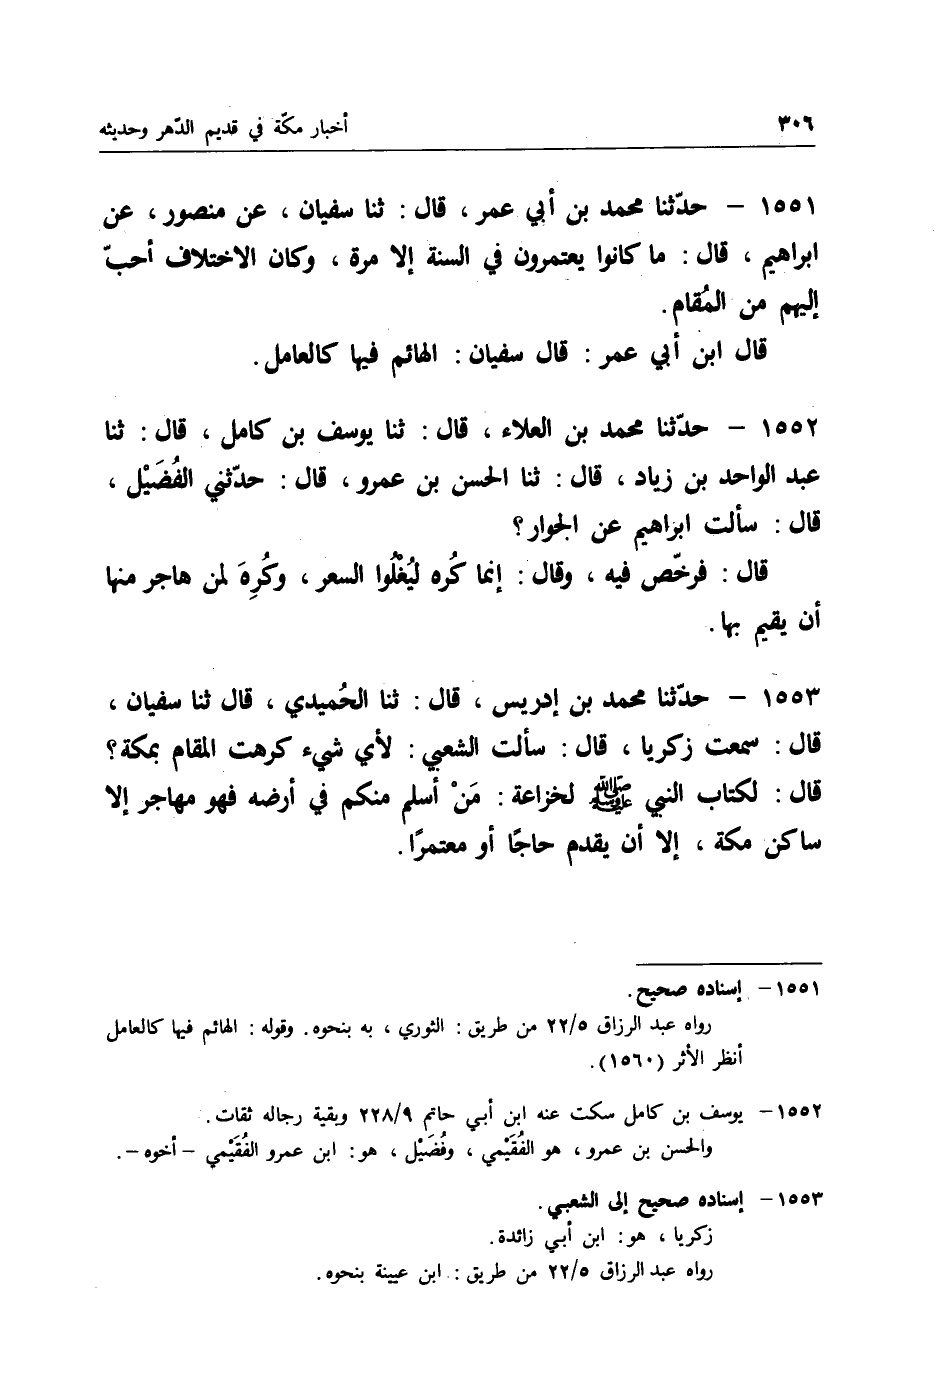 ٣٠٦ أخبار مكّة في قديم الدّهر وحديثه
١٥٥١ – حدّثنا محمد بن أبي عمر ، قال : ثنا سفيان ، عن منصور ، عن
ابراهيم ، قال : ما كانوا يعتمرون في السنة إلا مرة ، وكان الاختلاف أحبّ
إليهم من المُقام.
قال ابن أبي عمر : قال سفيان : الهائم فيها كالعامل.
١٥٥٢ – حدّثنا محمد بن العلاء ، قال : ثنا يوسف بن كامل ، قال : ثنا
عبد الواحد بن زياد ، قال : ثنا الحسن بن عمرو ، قال : حدّثني الفُضَيْل ،
قال : سألت ابراهيم عن الجوار؟
قال : فرخّص فيه ، وقال : إنما كُره ليُغْلُوا السعر ، وكُرِهَ لمن هاجر منها
أن يقيم بها.
١٥٥٣ – حدّثنا محمد بن إدريس ، قال : ثنا الحُميدي ، قال ثنا سفيان ،
قال : سمعت زكريا ، قال : سألت الشعبي : لأي شيء كرهت المقام بمكة؟
قال : لكتاب النبي ﷺ لخزاعة : مَنْ أسلم منكم في أرضه فهو مهاجر إلا
ساكن مكة ، إلا أن يقدم حاجًا أو معتمرًا.
١٥٥١– إسناده صحيح.
رواه عبد الرزاق ٢٢/٥ من طريق : الثوري ، به بنحوه. وقوله : الهائم فيها كالعامل
أنظر الأثر (١٥٦٠).
١٥٥٢– يوسف بن كامل سكت عنه ابن أبي حاتم ٢٢٨/٩ وبقية رجاله ثقات.
والحسن بن عمرو ، هو الفُقَيْمي ، وفُضَيْل ، هو: ابن عمرو الفُقَيْمي – أخوه –.
١٥٥٣– إسناده صحيح إلى الشعبي.
زكريا ، هو: ابن أبي زائدة.
رواه عبد الرزاق ٢٢/٥ من طريق : ابن عيينة بنحوه.